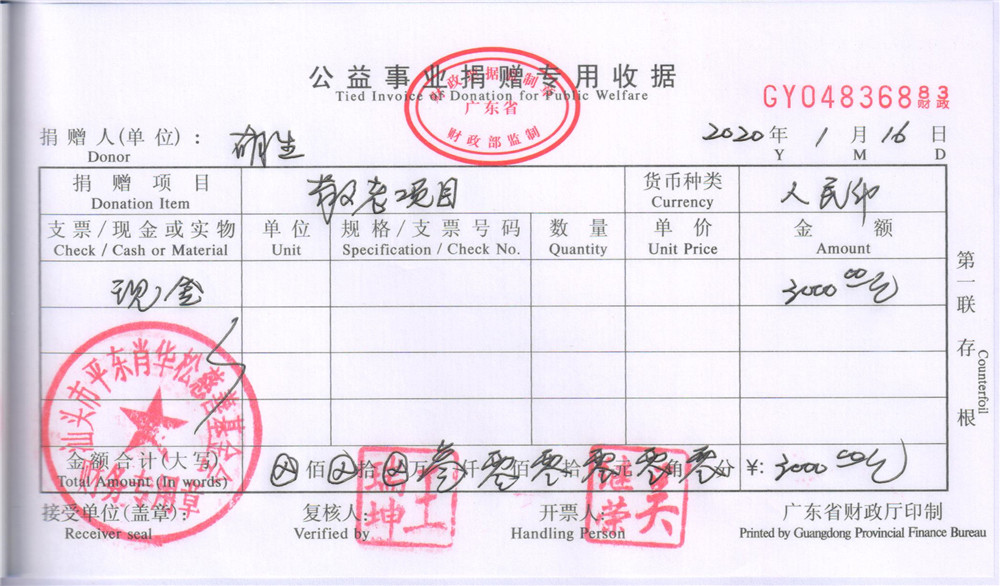 公益事业捐赠专用收据
Tied Invoice of Donation for Public Welfare
广东省
财政部监制
GY04836883
财政
捐赠人(单位): 生
Donor
2020年 1月 16日
Y M D
捐赠项目 敬老项目 货币种类 人民币
Donation Item Currency
支票/现金或实物 单位 规格/支票号码 数量 单价 金额
Check / Cash or Material Unit Specification / Check No. Quantity Unit Price Amount
现金 3000 00元
第一联 存根
Counterfoil
汕头市平东肖华松慈善基金会
财务专用章
金额合计(大写) 佰 拾 万 叁仟 零佰 零拾 零元 零角 零分 ¥: 3000 00元
Total Amount (In words)
接受单位(盖章): 复核人: 开票人: 广东省财政厅印制
Receiver seal Verified by Handling Person Printed by Guangdong Provincial Finance Bureau
王瑞坤
吴继荣